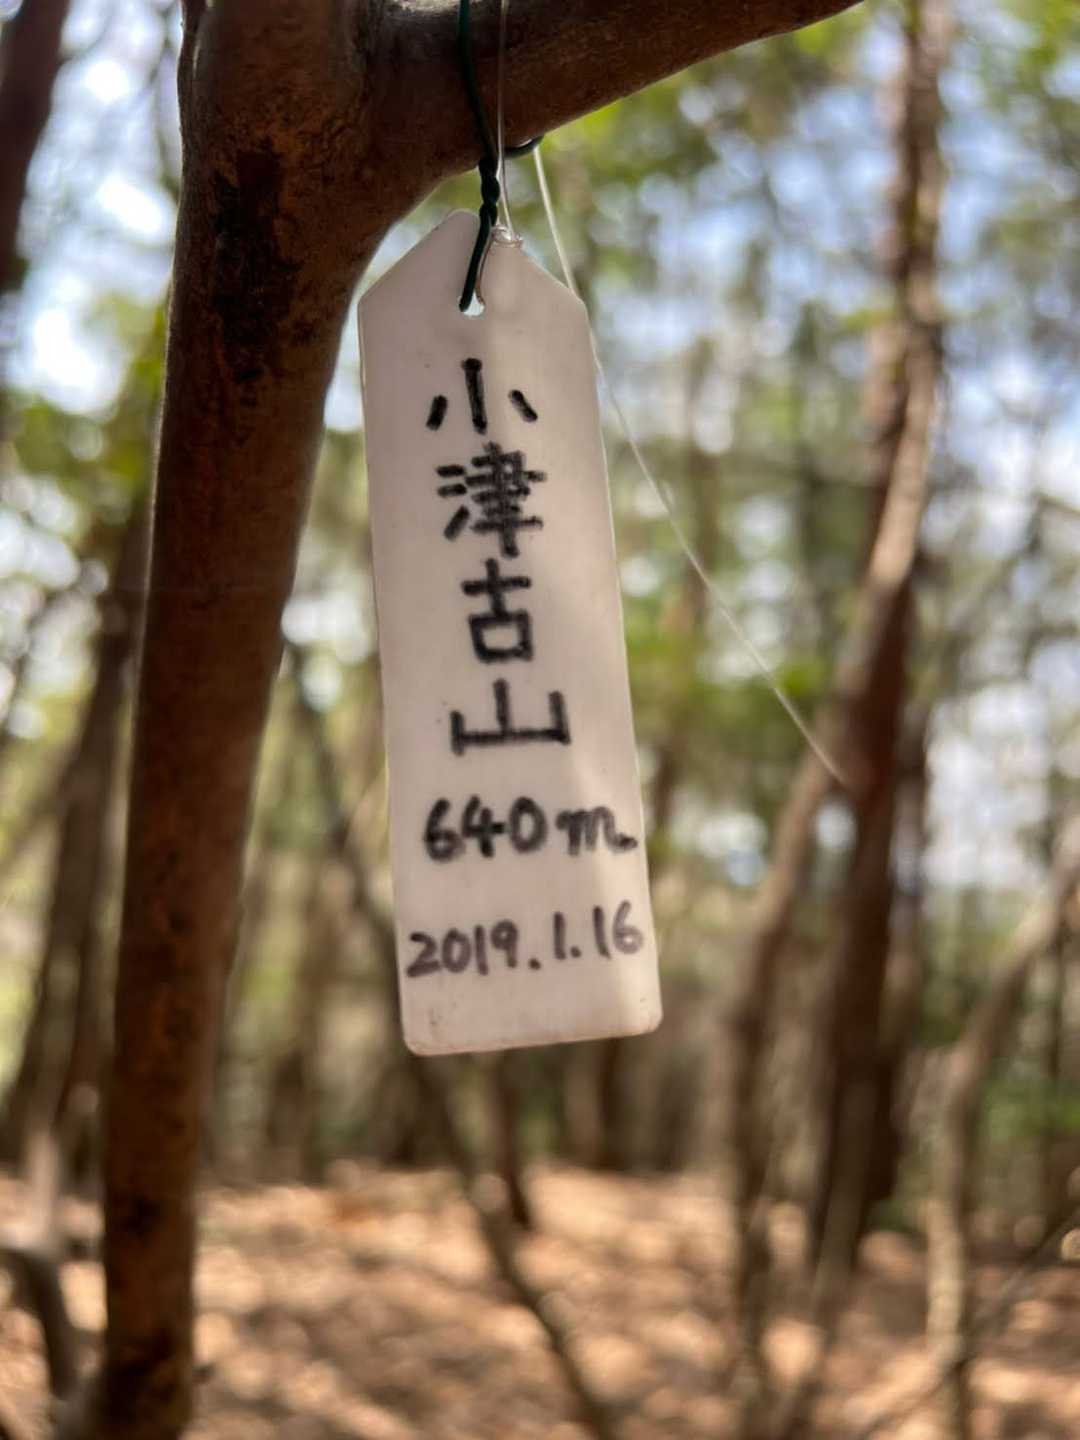 小津古山
640m
2019.1.16